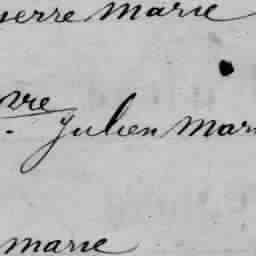 ierre marie
vre
. Julien mar
marie